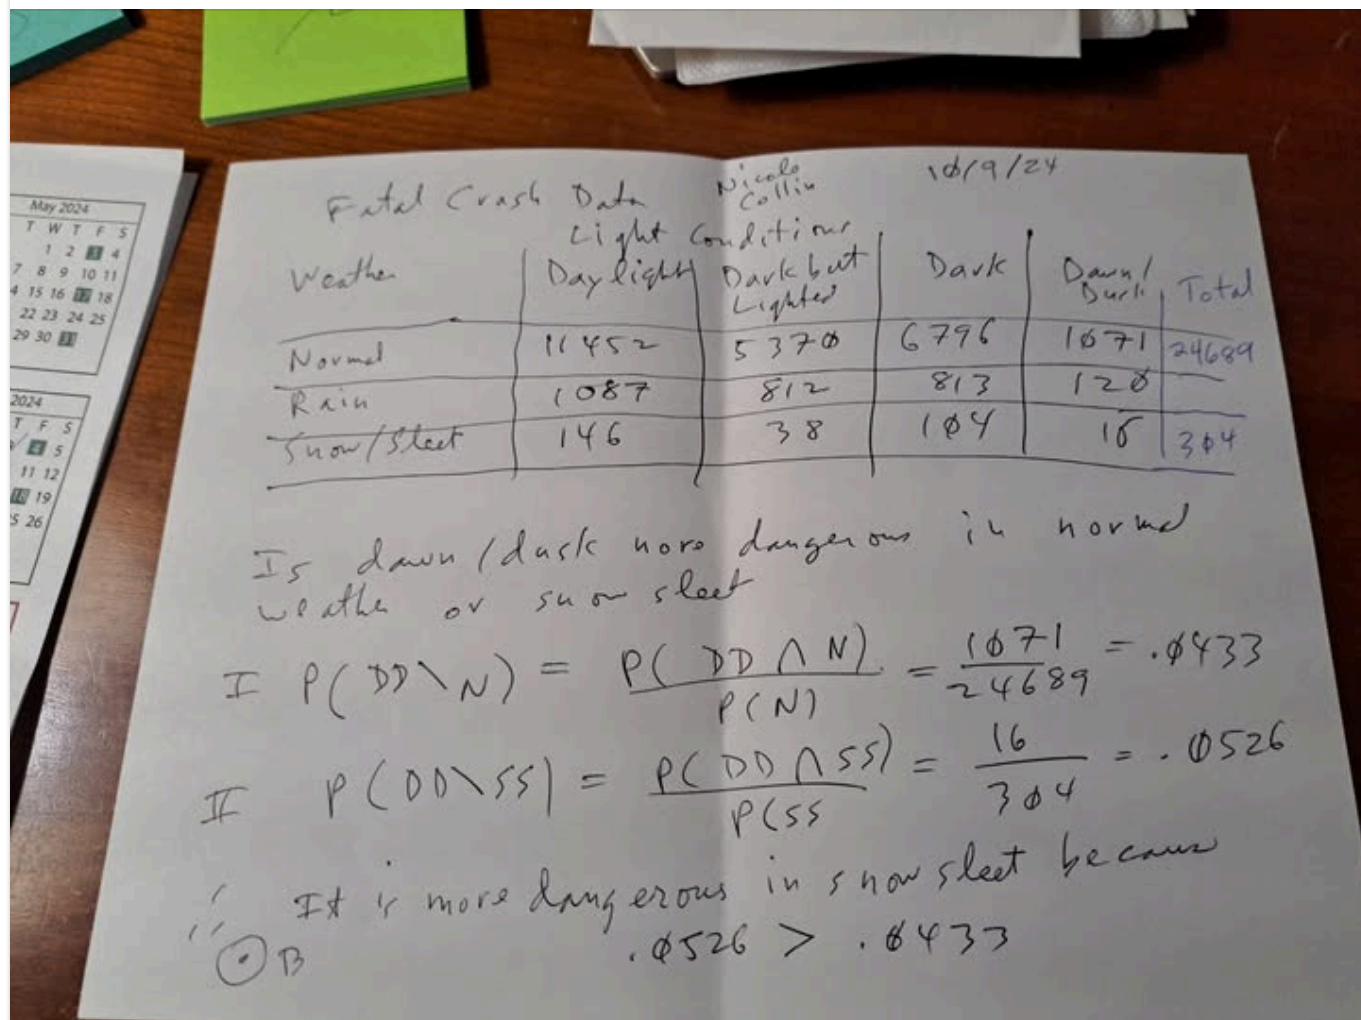 May 2024
T W T F S
1 2 3 4
7 8 9 10 11
4 15 16 17 18
22 23 24 25
29 30 31
2024
T F S
4 5
11 12
18 19
5 26
Fatal Crash Data Nicole Collin 10/9/24
Light Conditions
Weather Daylight Dark but Lighted Dark Dawn/ Total
Normal 11452 5370 6796 1071 24689
Rain 1087 812 813 120
Snow/Sleet 146 38 104 16 304
Is dawn/dusk more dangerous in normal
weather or snow sleet
I P(DD\N) = P(DD∩N) / P(N) = 1071 / 24689 = .0433
II P(DD\SS) = P(DD∩SS) / P(SS = 16 / 304 = .0526
∴ It is more dangerous in snow sleet because
.0526 > .0433
B